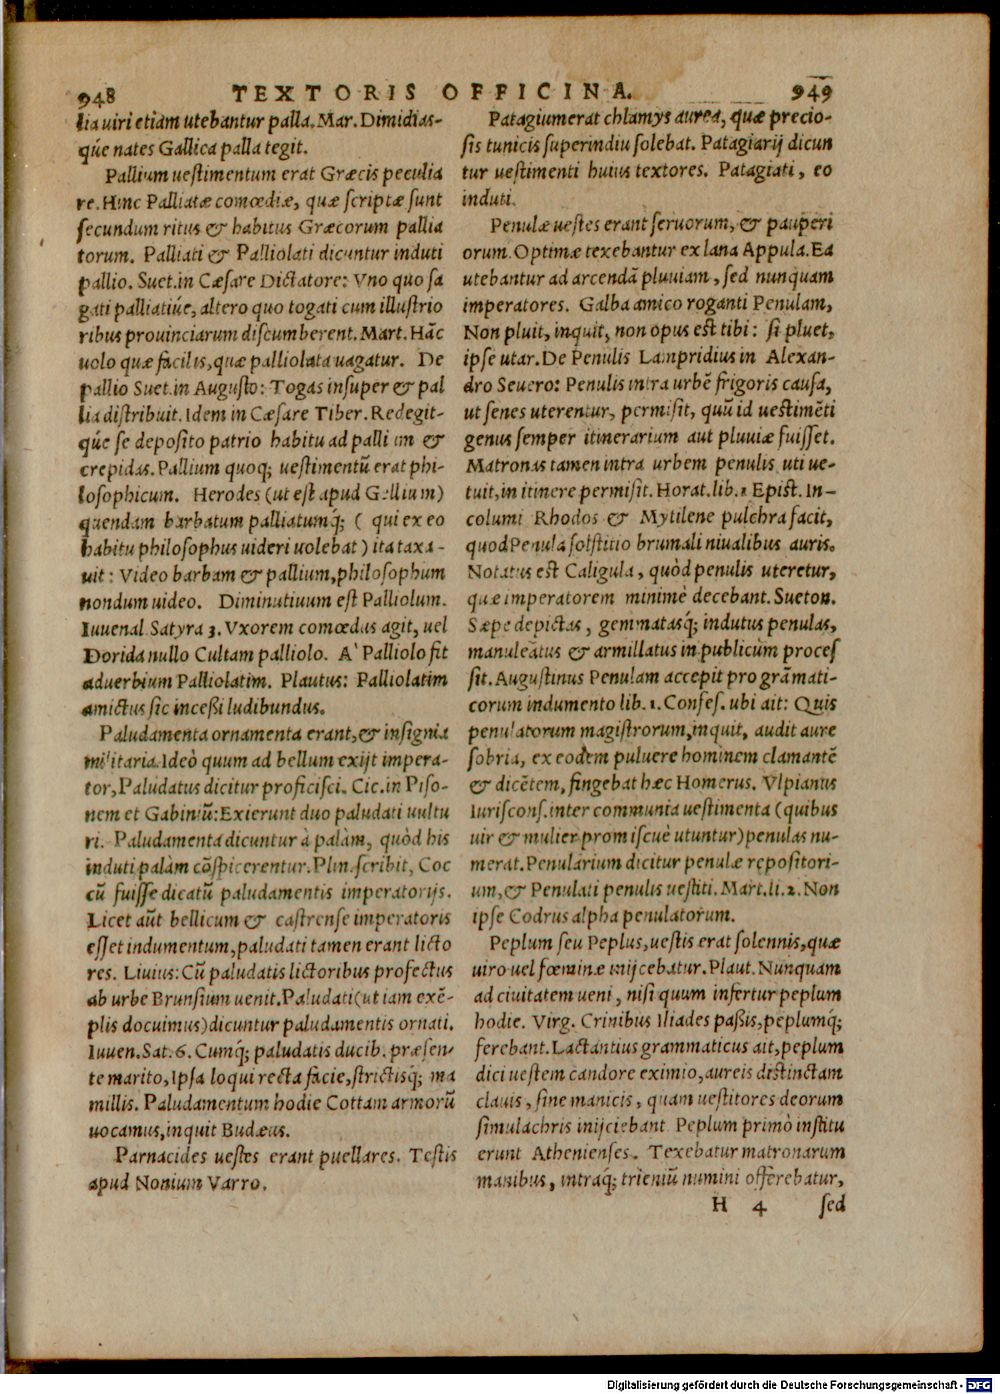 948 TEXTORIS OFFICINA. 949
lia uiri etiam utebantur palla. Mar. Dimidias-
q́ue nates Gallica palla tegit.
Pallium uestimentum erat Græcis peculia
re. Hinc Palliatæ comœdiæ, quæ scriptæ sunt
secundum ritus & habitus Græcorum pallia
torum. Palliati & Palliolati dicuntur induti
pallio. Suet. in Cæsare Dictatore: Vno quo sa
gati palliatiúe, altero quo togati cum illustrio
ribus prouinciarum discumberent. Mart. Hāc
uolo quæ facilis, quæ palliolata uagatur. De
pallio Suet. in Augusto: Togas insuper & pal
lia distribuit. Idem in Cæsare Tiber. Redegit-
q́ue se deposito patrio habitu ad pallium &
crepidas. Pallium quoq; uestimentū erat phi-
losophicum. Herodes (ut est apud Gellium)
quendam barbatum palliatumq́; ( qui ex eo
habitu philosophus uideri uolebat ) ita taxa-
uit: Video barbam & pallium, philosophum
nondum uideo. Diminutiuum est Palliolum.
Iuuenal Satyra 3. Vxorem comœdus agit, uel
Dorida nullo Cultam palliolo. A` Palliolo fit
aduerbium Palliolatim. Plautus: Palliolatim
amictus sic inceßi ludibundus.
Paludamenta ornamenta erant, & insignia
militaria. Ideò quum ad bellum exijt impera-
tor, Paludatus dicitur proficisci. Cic. in Piso-
nem et Gabiniū: Exierunt duo paludati uultu
ri. Paludamenta dicuntur à palàm, quòd his
induti palàm cōspicerentur. Plin. scribit, Coc
cū fuisse dicatū paludamentis imperatorijs.
Licet aūt bellicum & castrense imperatoris
esset indumentum, paludati tamen erant licto
res. Liuius: Cū paludatis lictoribus profectus
ab urbe Brunsium uenit. Paludati (ut iam exē-
plis docuimus) dicuntur paludamentis ornati.
Iuuen. Sat. 6. Cumq́; paludatis ducib. præsen-
te marito, Ipsa loqui recta facie, strictisq́; ma
millis. Paludamentum hodie Cottam armorū
uocamus, inquit Budæus.
Parnacides uestes erant puellares. Testis
apud Nonium Varro.
Patagium erat chlamys aurea, quæ precio-
sis tunicis superindui solebat. Patagiarij dicun
tur uestimenti huius textores. Patagiati, eo
induti.
Penulæ uestes erant seruorum, & pauperi
orum. Optimæ texebantur ex lana Appula. Ea
utebantur ad arcendā pluuiam, sed nunquam
imperatores. Galba amico roganti Penulam,
Non pluit, inquit, non opus est tibi: si pluet,
ipse utar. De Penulis Lampridius in Alexan-
dro Seuero: Penulis intra urbē frigoris causa,
ut senes uterentur, permisit, quū id uestimēti
genus semper itinerarium aut pluuiæ fuisset.
Matronas tamen intra urbem penulis uti ue-
tuit, in itinere permisit. Horat. lib. 1 Epist. In-
columi Rhodos & Mytilene pulchra facit,
quod Penula solstitio brumali niualibus auris.
Notatus est Caligula, quòd penulis uteretur,
quæ imperatorem minimè decebant. Sueton.
Sæpe depictas, gemmatasq́; indutus penulas,
manuleatus & armillatus in publicum proces
sit. Augustinus Penulam accepit pro grāmati-
corum indumento lib. 1. Confes. ubi ait: Quis
penulatorum magistrorum, inquit, audit aure
sobria, ex eodem puluere hominem clamantē
& dicētem, fingebat hæc Homerus. Vlpianus
Iurisconf. inter communia uestimenta (quibus
uir & mulier promiscuè utuntur) penulas nu-
merat. Penularium dicitur penulæ repositori-
um, & Penulati penulis uestiti. Mart. li. 2. Non
ipse Codrus alpha penulatorum.
Peplum seu Peplus, uestis erat solennis, quæ
uiro uel fœminæ inijcebatur. Plaut. Nunquam
ad ciuitatem ueni, nisi quum infertur peplum
hodie. Virg. Crinibus Iliades paßis, peplumq́;
ferebant. Lactantius grammaticus ait, peplum
dici uestem candore eximio, aureis distinctam
clauis, sine manicis, quam uestitores deorum
simulachris inijciebant. Peplum primò institu
erunt Athenienses. Texebatur matronarum
manibus, intraq́; trieniū numini offerebatur,
H 4 sed
Digitalisierung gefördert durch die Deutsche Forschungsgemeinschaft - DFG